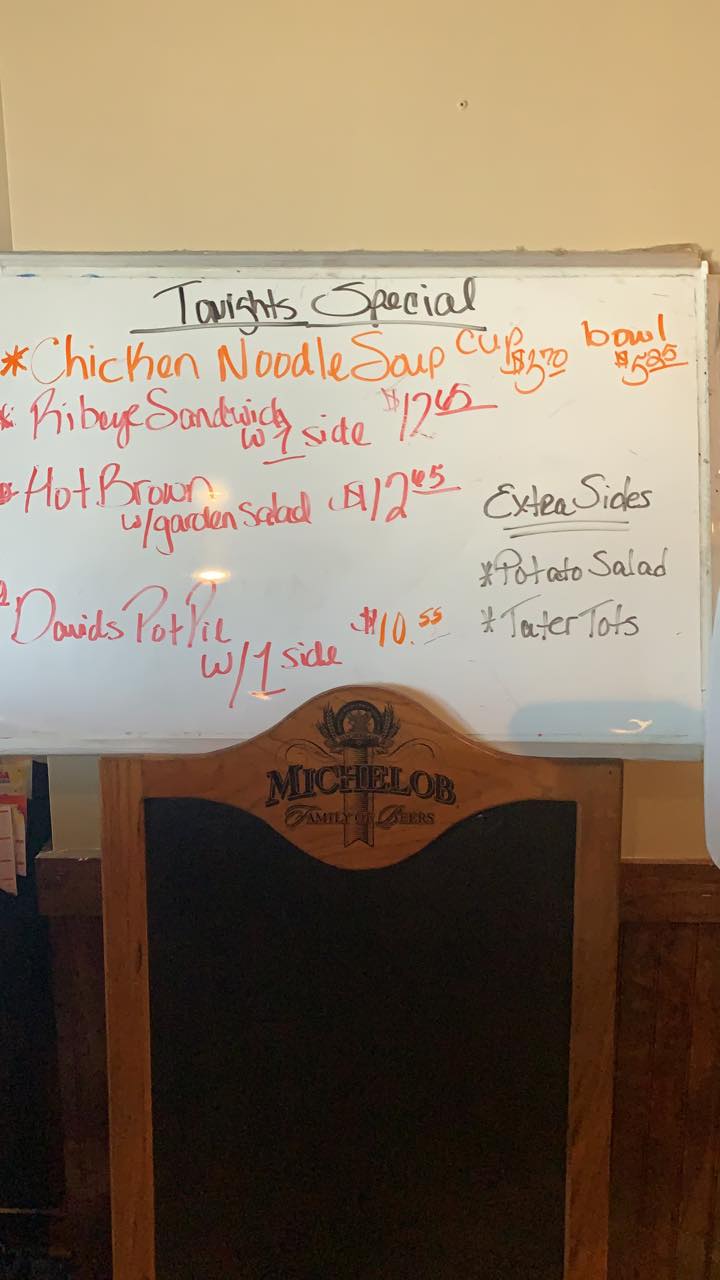 Tonights Special
*Chicken Noodle Soup cup $3.70 bowl $5.25
* Ribeye Sandwich $12.65
w/ 1 side
Hot Brown $12.65
w/garden salad
Davids Pot Pie $10.55
w/1 side
Extra Sides
*Potato Salad
*Tater Tots
MICHELOB
FAMILY OF BEERS